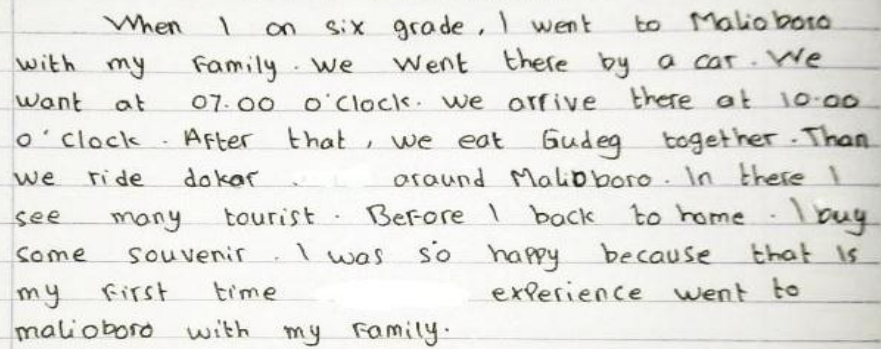 When I on six grade, I went to Malioboro
with my Family. We went there by a car. We
want at 07.00 o'clock. We arrive there at 10.00
o'clock. After that, we eat Gudeg together. Than
we ride dokar . araund Malioboro. In there I
see many tourist. Before I back to home. I buy
some souvenir. I was so happy because that is
my first time experience went to
malioboro with my Family.